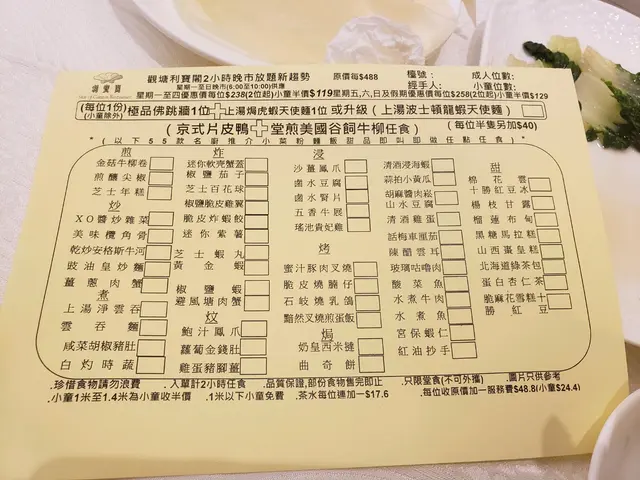 稻香寶
觀塘利寶閣2小時晚市放題新趨勢 原價每$488
星期一至日晚市(6:00至10:00)供應
檯號: 成人位數:
經手人: 小童位數:
星期一至四優惠價每位$238(2位起)小童半價$119星期五,六,日及假期優惠價每位$258(2位起)小童半價$129
(每位1份)(小童除外) 極品佛跳牆1位＋上湯焗虎蝦天使麵1位 或升級(上湯波士頓龍蝦天使麵)
(京式片皮鴨＋堂煎美國谷飼牛柳任食) (每位半隻另加$40)
*(以下55款名廚推介小菜粉麵飯甜品即叫即做任點任食)*
煎
金菇牛柳卷
煎釀尖椒
芝士年糕
炒
XO醬炒雜菜
美味欖角骨
乾炒安格斯牛河
豉油皇炒麵
薑蔥肉蟹
煮
上湯淨雲吞
雲吞麵
咸菜胡椒豬肚
白灼時蔬
炸
迷你軟壳蟹蓋
椒鹽茄子
芝士百花球
椒鹽脆皮雞翼
脆皮炸蝦餃
迷你紫薯
芝士蝦丸
黃金蝦
椒鹽蝦
避風塘肉蟹
炆
鮑汁鳳爪
蘿蔔金錢肚
雞蛋豬腳薑
浸
沙薑鳳爪
鹵水豆腐
鹵水腎片
五香牛展
瑤池貴妃雞
烤
蜜汁豚肉叉燒
脆皮燒腩仔
石岐燒乳鴿
黯然叉燒煎蛋飯
焗
奶皇西米撻
曲奇餅
清酒浸海蝦
蒜拍小黃瓜
胡麻醬肉崧
山水豆腐
清酒雞蛋
話梅車厘茄
陳醋雲耳
玻璃咕嚕肉
酸菜魚
水煮牛肉
水煮魚
宮保蝦仁
紅油抄手
甜
棉花雲
十勝紅豆冰
楊枝甘露
榴蓮布甸
黑糖馬拉糕
山西棗皇糕
北海道綠茶包
蛋白杏仁茶
脆麻花雪糕十勝紅豆
.珍惜食物請勿浪費 .入單計2小時任食 .品質保證,部份食物售完即止 .只限堂食(不可外攜) .圖片只供參考
.小童1米至1.4米為小童收半價 .1米以下小童免費 .茶水每位連加一$17.6 .每位收原價加一服務費$48.8(小童$24.4)